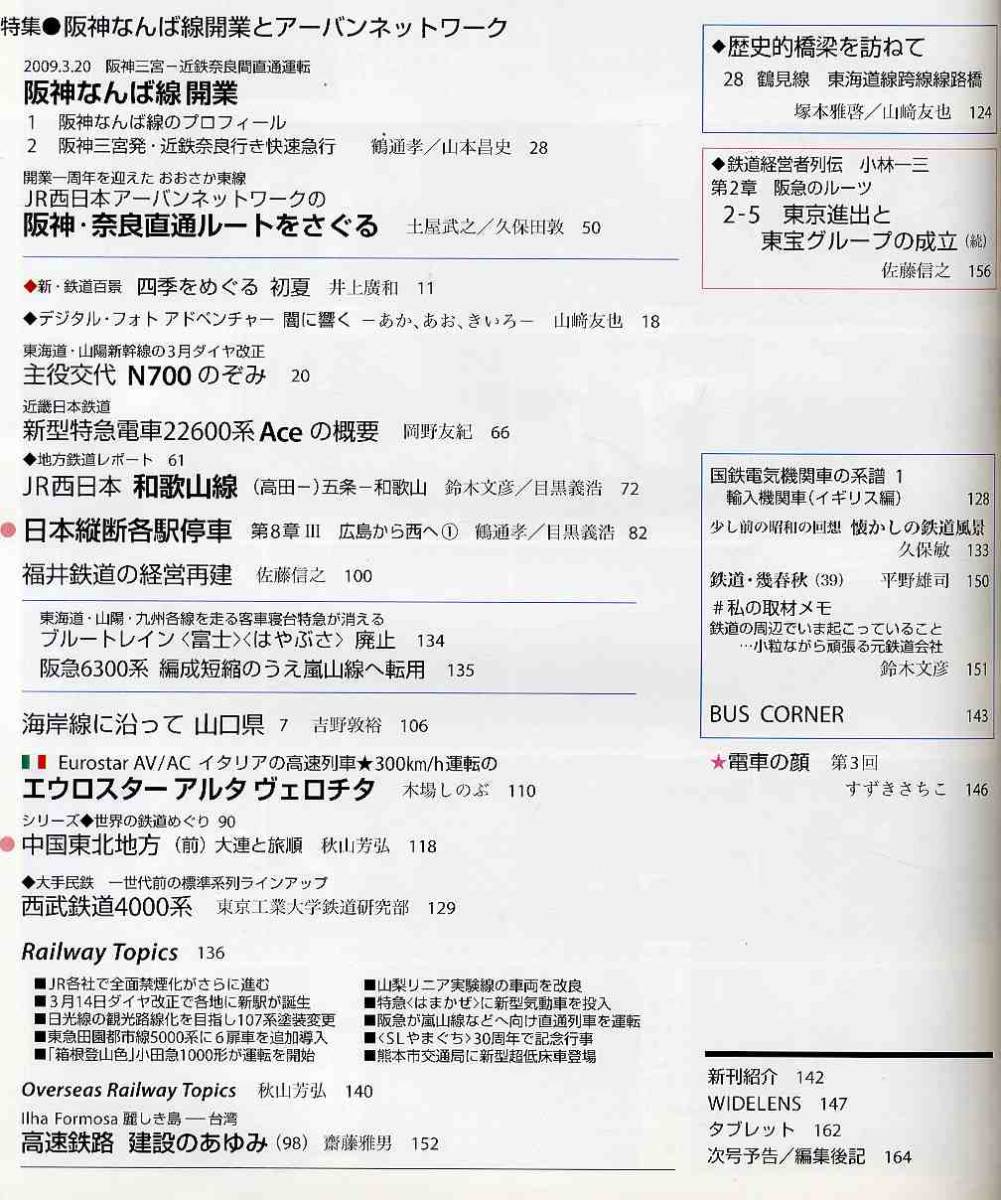 特集●阪神なんば線開業とアーバンネットワーク
2009.3.20 阪神三宮－近鉄奈良間直通運転
阪神なんば線開業
1 阪神なんば線のプロフィール
2 阪神三宮発・近鉄奈良行き快速急行 鶴通孝／山本昌史 28
開業一周年を迎えた おおさか東線
JR西日本アーバンネットワークの
阪神・奈良直通ルートをさぐる 土屋武之／久保田敦 50
◆新・鉄道百景 四季をめぐる 初夏 井上廣和 11
◆デジタル・フォト アドベンチャー 闇に響く －あか、あお、きいろ－ 山﨑友也 18
東海道・山陽新幹線の3月ダイヤ改正
主役交代 N700のぞみ 20
近畿日本鉄道
新型特急電車22600系Aceの概要 岡野友紀 66
◆地方鉄道レポート 61
JR西日本 和歌山線 (高田－)五条－和歌山 鈴木文彦／目黒義浩 72
●日本縦断各駅停車 第8章 III 広島から西へ① 鶴通孝／目黒義浩 82
福井鉄道の経営再建 佐藤信之 100
東海道・山陽・九州各線を走る客車寝台特急が消える
ブルートレイン〈富士〉〈はやぶさ〉廃止 134
阪急6300系 編成短縮のうえ嵐山線へ転用 135
海岸線に沿って 山口県 7 吉野敦裕 106
Eurostar AV/AC イタリアの高速列車★300km/h運転の
エウロスター アルタ ヴェロチタ 木場しのぶ 110
シリーズ◆世界の鉄道めぐり 90
●中国東北地方 (前) 大連と旅順 秋山芳弘 118
◆大手民鉄 一世代前の標準系列ラインアップ
西武鉄道4000系 東京工業大学鉄道研究部 129
Railway Topics 136
■JR各社で全面禁煙化がさらに進む
■3月14日ダイヤ改正で各地に新駅が誕生
■日光線の観光路線化を目指し107系塗装変更
■東急田園都市線5000系に6扉車を追加導入
■「箱根登山色」小田急1000形が運転を開始
■山梨リニア実験線の車両を改良
■特急〈はまかぜ〉に新型気動車を投入
■阪急が嵐山線などへ向け直通列車を運転
■〈SLやまぐち〉30周年で記念行事
■熊本市交通局に新型超低床車登場
Overseas Railway Topics 秋山芳弘 140
Ilha Formosa 麗しき島 ― 台湾
高速鉄路 建設のあゆみ (98) 齋藤雅男 152
◆歴史的橋梁を訪ねて
28 鶴見線 東海道線跨線線路橋
塚本雅啓／山﨑友也 124
◆鉄道経営者列伝 小林一三
第2章 阪急のルーツ
2-5 東京進出と
東宝グループの成立 (続)
佐藤信之 156
国鉄電気機関車の系譜 1
輸入機関車(イギリス編) 128
少し前の昭和の回想 懐かしの鉄道風景
久保敏 133
鉄道・幾春秋 (39) 平野雄司 150
＃私の取材メモ
鉄道の周辺でいま起こっていること
…小粒ながら頑張る元鉄道会社
鈴木文彦 151
BUS CORNER 143
★電車の顔 第3回
すずきさちこ 146
新刊紹介 142
WIDELENS 147
タブレット 162
次号予告／編集後記 164